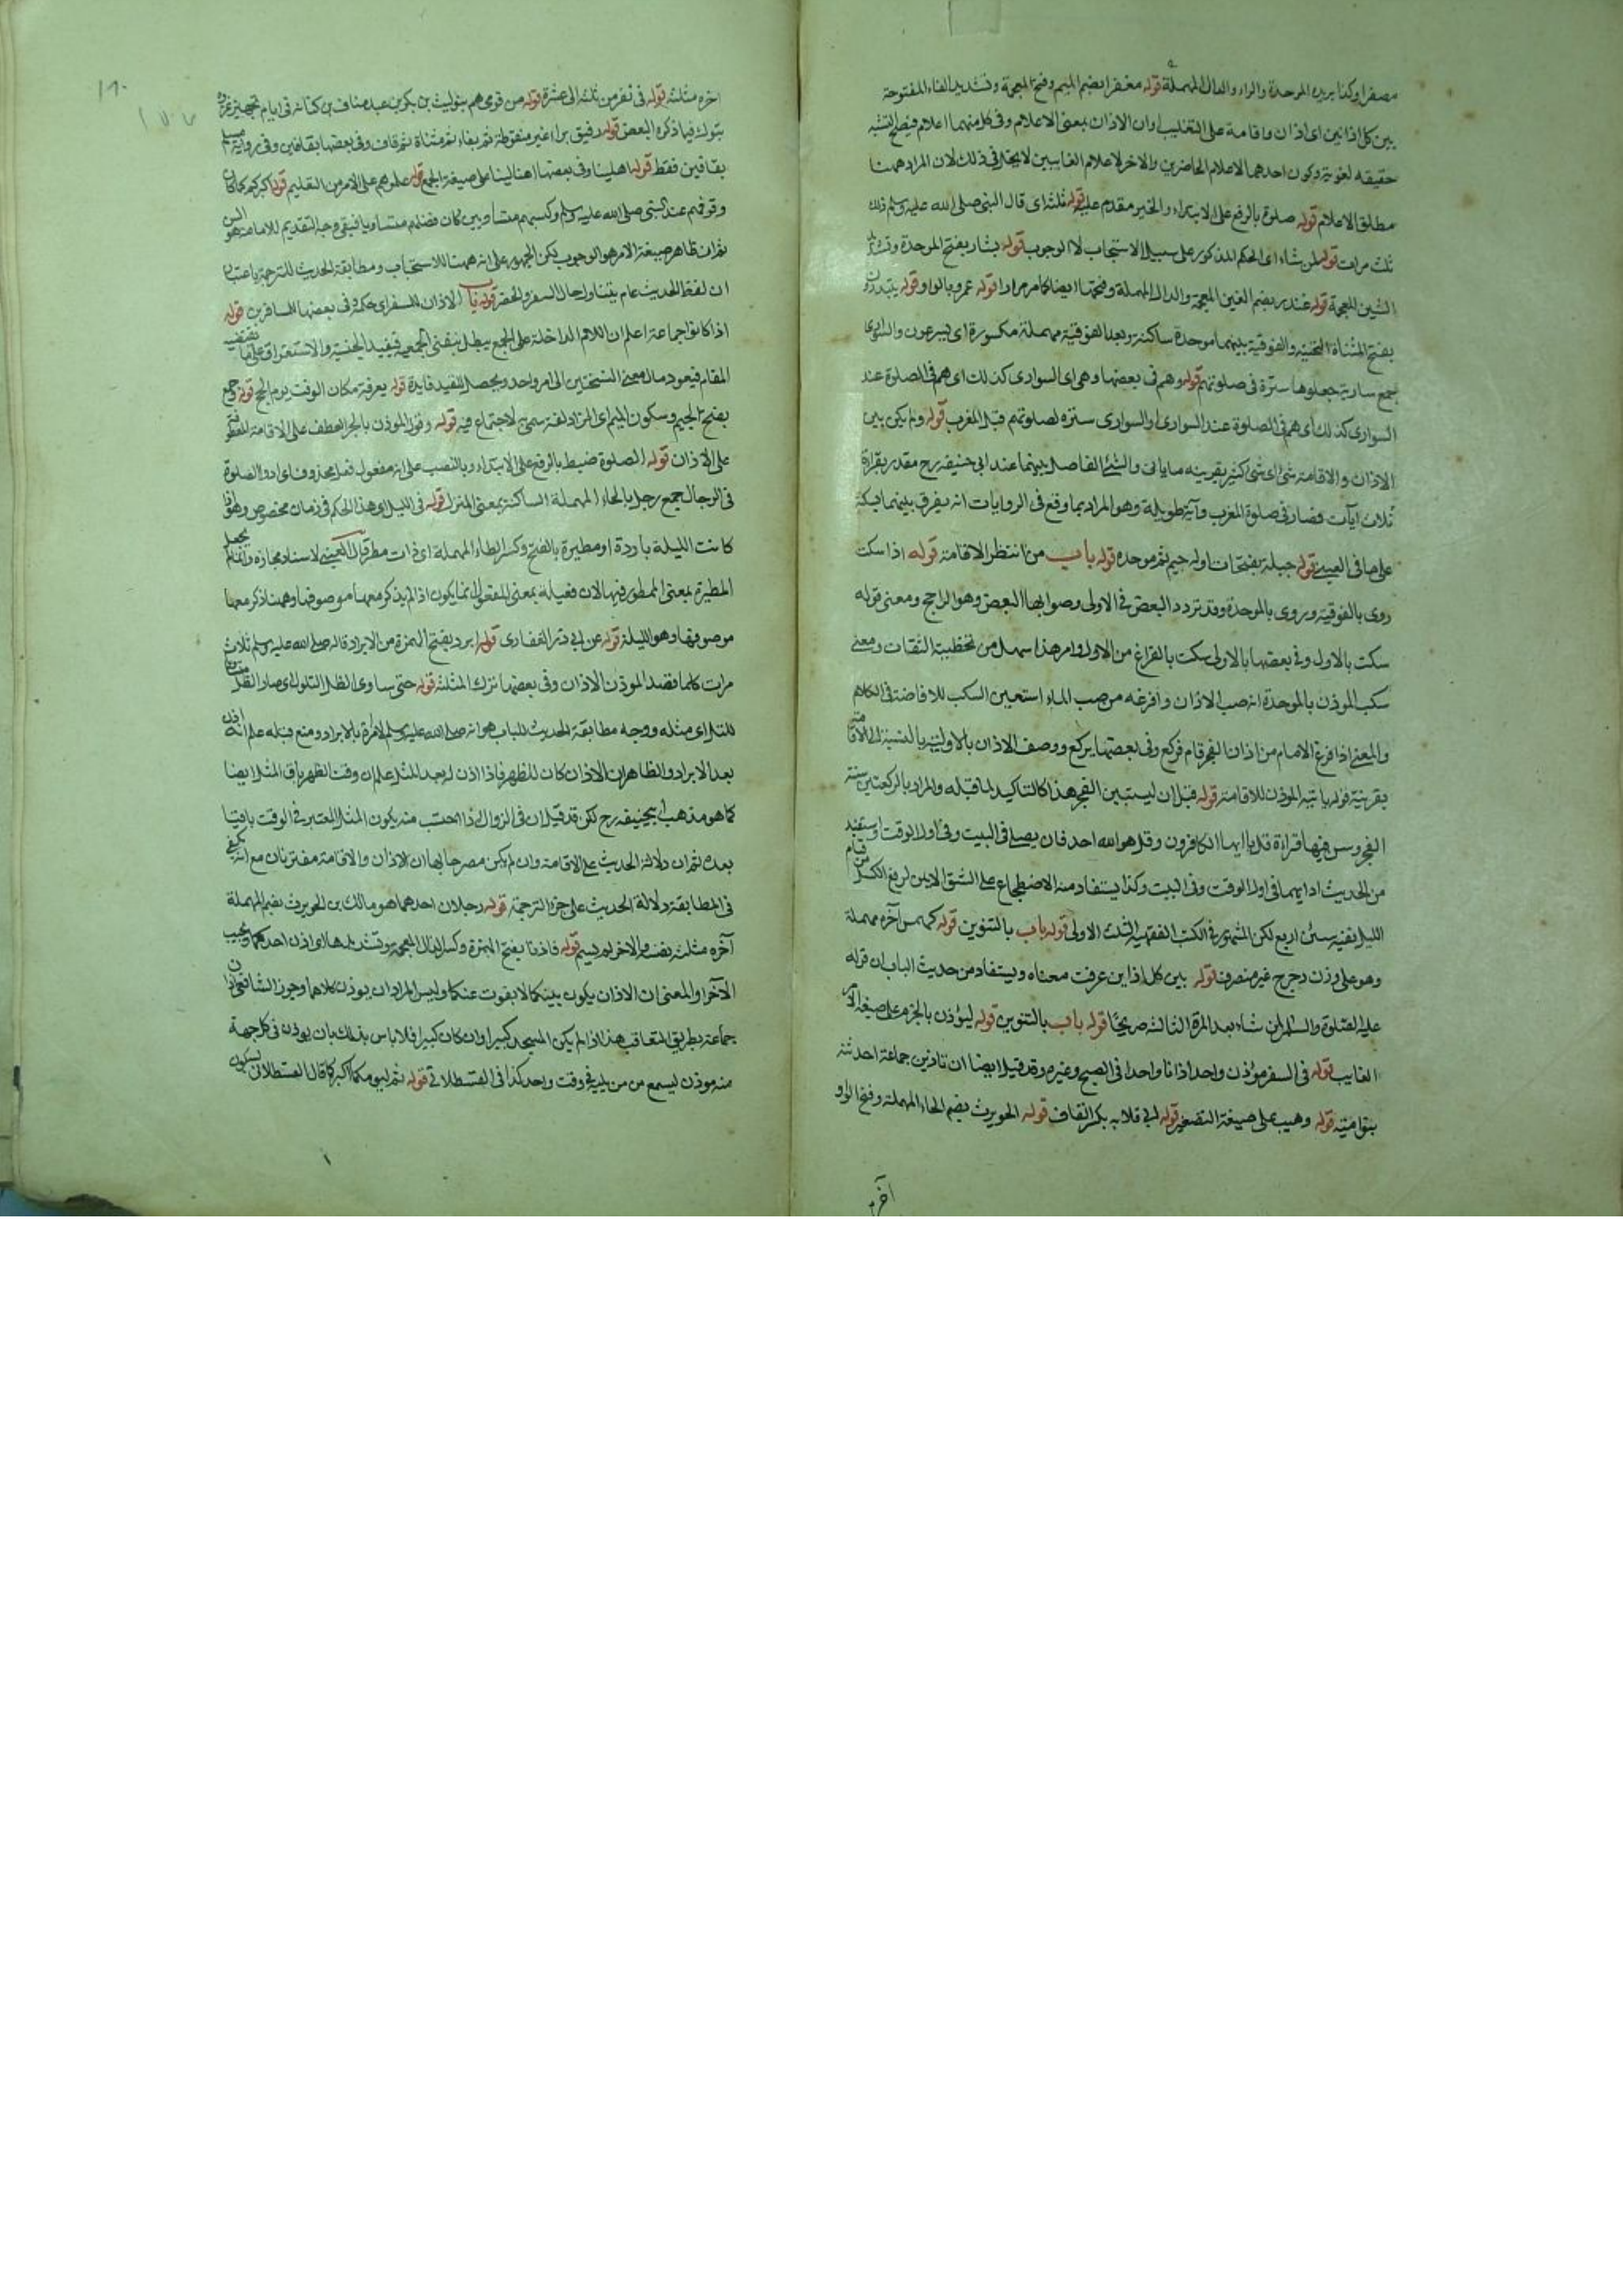 مصغرا وكذا بريدة الموحدة والراء والدال المهملة قوله مغفر ابضم الميم وفتح المعجمة وتشديد الفاء المفتوحة
بين كل اذانين اى اذان واقامة على التغليب اوان الاذان بمعنى الاعلام وفى كل منهما اعلام فيصلح التثنيه
حقيقه لغوية وكون احدهما الاعلام الحاضرين والاخر لاعلام الغايبين لا يختل فى ذلك لان المراد ههنا
مطلق الاعلام قوله صلوة بالرفع على الابتداء والخبر مقدم عليه قوله ثلثا اى قال النبى صلى الله عليه وسلم ذلك
ثلث مرات قوله لمن شاء اى الحكم المذكور على سبيل الاستحباب لا الوجوب قوله بشار بفتح الموحدة وتشديد
الشين المعجمة قوله غندر بضم الغين المعجمة والدال المهملة وفتحها ايضا كما مر مرارا قوله عمرو بالواو قوله يبتدرون
بفتح المثناة التحتية والفوقية بينهما موحدة ساكنة وبعد الفوقية مهملة مكسورة اى يسرعون والسوارى
جمع سارية جعلوها سترة فى صلوتهم قوله وهم فى بعضها وهى اى السوارى كذلك اى هم فى الصلوة عند
السوارى كذلك اى هم فى الصلوة عند السوارى او السوارى ستره لصلوتهم قبل المغرب قوله ولم يكن بين
الاذان والاقامة شئ اى شئ كثير بقرينه ما ياتى والشئ الفاصل بينهما عند ابى حنيفة رح مقدر بقراءة
ثلاث ايات قصار فى صلوة المغرب وآية طويلة وهو المراد بما وقع فى الروايات انه يفرق بينهما بسكتة
على ما فى العينى قوله جبلة بفتحات اوله جيم ثم موحده قوله باب من انتظر الاقامة قوله اذا سكت
روى بالفوقية وروى بالموحدة وقد تردد البعض فى الاولى وصوابها البعض وهو الراجح ومعنى قوله
سكت بالاولى وفى بعضها بالاولى سكت بالفراغ من الاول وامر هذا سهل من تخطيئة الثقات ومعنى
سكب الموذن بالموحدة انه صب الاذان وافرغه من صب الماء استعير السكب للافاضة فى الكلام
والمعنى اذا فرغ الامام من اذان الفجر قام فركع وفى بعضها يركع ووصف الاذان بالاولية بالنسبة الى الاقامة
بقرينة قوله ياتيه الموذن للاقامة قوله قبل ان يستبين الفجر هذا كالتاكيد لما قبله والمراد بالركعتين سنة
الفجر وسن فيها قراءة قل يا ايها الكافرون وقل هو الله احد فان يصلى فى البيت وفى اول الوقت واستفيد
من الحديث اداءهما فى اول الوقت وفى البيت وكذا يستفاد منه الاضطجاع على الشق الايمن لرفع الكسل من قيام
الليل بقيه سنن اربع لكن المشهور فى الكتب الفقهية الثلث الاولى قوله باب بالتنوين قوله كهمس آخره مهملة
وهو على وزن دحرج غير منصرف قوله بين كل اذانين عرفت معناه ويستفاد من حديث الباب ان قوله
عليه الصلوة والسلام لمن شاء بعد المرة الثالثة صريحا قوله باب بالتنوين قوله ليؤذن بالجزم على صيغة الامر
الغايب قوله فى السفر مؤذن واحد اذانا واحدا فى الصبح وغيره وقد قيل ايضا ان تاذين جماعة احدثته
بنو امية قوله وهيب على صيغة التصغير قوله ابى قلابه بكسر القاف قوله الحويرث بضم الحاء المهملة وفتح الواو
آخره
١٨٠
١٧٧
اخره مثلثة قوله فى نفر من ثلثة الى عشرة قوله من قومى هم بنو ليث بن بكر بن عبد مناف بن كنانه فى ايام تجهيز غزوة
تبوك فيما ذكره البعض قوله رفيق براء غير منقوطة ثم بفاء ثم مثناة ثم قاف وفى بعضها بقافين وفى رواية مسلم
بقافين فقط قوله اهلينا وفى بعضها اهالينا على صيغة الجمع قوله علموهم على الامر من التعليم قوله اكبركم كما كان
وقوفهم عند النبى صلى الله عليه وسلم وكسبهم متساويين كان فضلهم متساويا فبقى وجه التقديم للامامة هو السن
ثم ان ظاهر صيغة الامر هو الوجوب لكن الجمهور على انه ههنا للاستحباب ومطابقة الحديث للترجمة باعتبار
ان لفظ الحديث عام يتناول حال السفر والحضر قوله باب الاذان للسفر اى حكمه وفى بعضها للمسافرين قوله
اذا كانوا جماعة اعلم ان اللام الداخلة على الجمع يبطل معنى الجمعية فيفيد الجنسية والاستغراق على ما يقتضيه
المقام فيعود مال معنى النسختين الى امر واحد ويحصل للقيد فايدة قوله بعرفة مكان الوقت يوم الحج قوله وجمع
بفتح الجيم وسكون الميم اى المزدلفة سمى لاجتماع فيه قوله وقول الموذن بالجر العطف على الاقامة للعطف
على الاذان قوله الصلوة ضبط بالرفع على الابتداء وبالنصب على انه مفعول فعل محذوف اى ادوا الصلوة
فى الرحال جمع رحل بالحاء المهملة الساكنة بمعنى المنزل قوله فى الليل اى هذا الحكم فى زمان مخصوص وهو اذا
كانت الليلة باردة او مطيرة بالفتح وكسر الطاء المهملة اى ذات مطر قال العينى لاسناد مجازه وانما لم يجعل
المطيرة بمعنى الممطور فيها لان فعيلة بمعنى المفعول انما يكون اذا لم يذكر معها موصوفها وههنا ذكر معها
موصوفها وهو الليلة قوله عن ابى ذر الغفارى قوله ابرد بفتح الهمزة من الابراد قاله صلى الله عليه وسلم ثلاث
مرات كلما قصد الموذن الاذان وفى بعضها ترك المثلثه قوله حتى ساوى الظل التلول اى صار الظل مساويا
للتل اى مثله ووجه مطابقة الحديث للباب هو انه صلى الله عليه وسلم لما امره بالابراد ومنع قبله علم انه اذن
بعد الابراد والظاهر ان الاذان كان للظهر فاذا اذن له بعد المثل علم ان وقت الظهر باق المثل ايضا
كما هو مذهب ابى حنيفه رح لكن قد قيل ان فى الزوال اذا احتسب منه يكون المثل المعتبر فى الوقت باقيا
بعده ثم ان دلالة الحديث على الاقامة وان لم يكن مصرحا بها ان الاذان والاقامة مقترنان مع انه يكفى
فى المطابقة دلالة الحديث على جزء الترجمة قوله رجلان احدهما هو مالك بن الحويرث بضم المهملة
آخره مثلثة نفسه والاخر لم يسم قوله فاذنا بفتح الهمزة وكسر الذال المعجمة وتشديدها اى اذن احدكما ويجيب
الآخر او المعنى ان الاذان يكون بينكما لا يفوت عنكما وليس المراد ان يوذن كلاهما وجوز الشافعى اذان
جماعة بطريق التعاقب هذا اذا لم يكن المسجد كبيرا وان كان كبيرا فلا باس بذلك بان يوذن فى كل جهة
منه موذن ليسمع من من يليه فى وقت واحد كذا فى القسطلانى قوله ثم ليؤمكما اكبركما قال القسطلانى بسكون